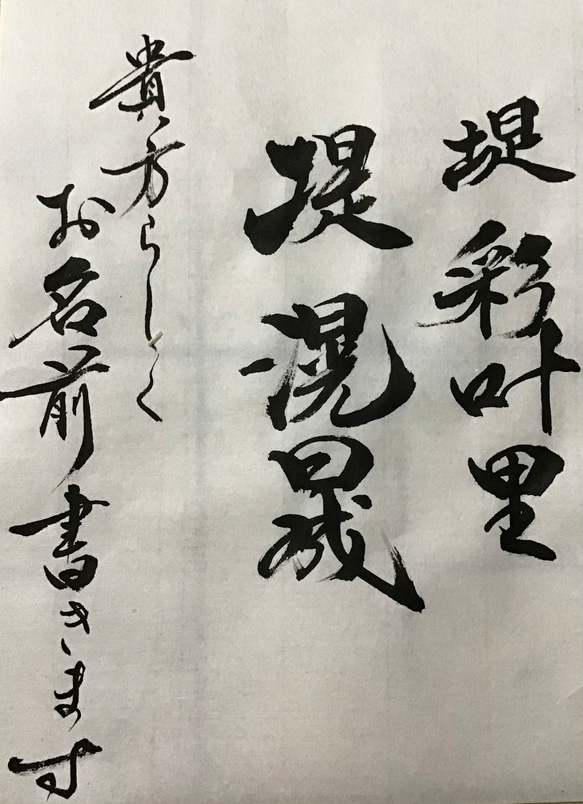 堤彩叶里
堤滉晟
貴方らしく
お名前書きます